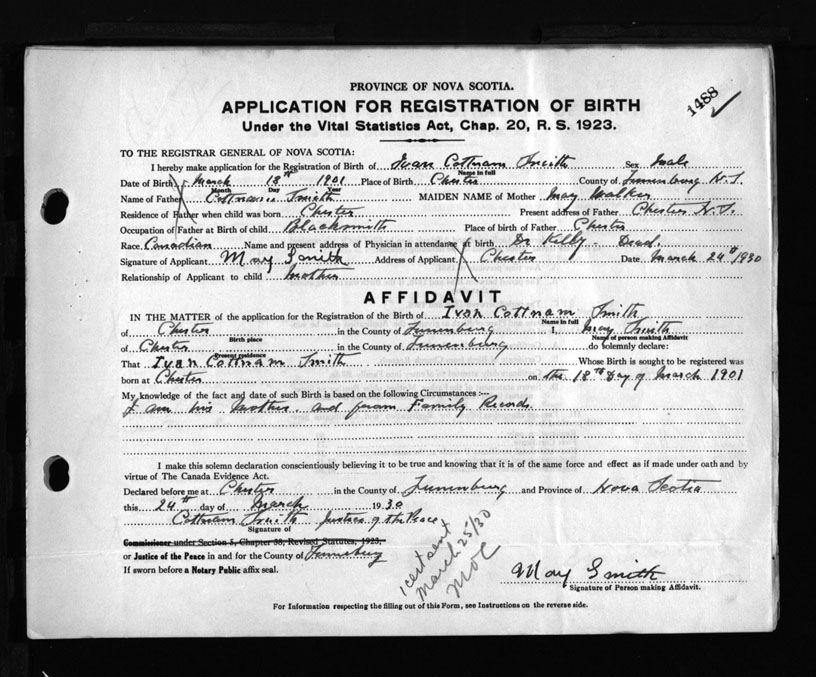 PROVINCE OF NOVA SCOTIA.
APPLICATION FOR REGISTRATION OF BIRTH
1488
Under the Vital Statistics Act, Chap. 20, R. S. 1923.
TO THE REGISTRAR GENERAL OF NOVA SCOTIA:
I hereby make application for the Registration of Birth of Ivan Cottnam Smith Sex Male
Name in full
Date of Birth March 18th 1901 Place of Birth Chester County of Lunenburg N.S.
Month Day Year
Name of Father Cottnam Smith MAIDEN NAME of Mother May Walker
Residence of Father when child was born Chester Present address of Father Chester N.S.
Occupation of Father at Birth of child Blacksmith Place of birth of Father Chester
Race Canadian Name and present address of Physician in attendance at birth Dr Kelly - Dead.
Signature of Applicant May Smith Address of Applicant Chester Date March 24th 1930
Relationship of Applicant to child Mother
AFFIDAVIT
IN THE MATTER of the application for the Registration of the Birth of Ivan Cottnam Smith
Name in full
of Chester in the County of Lunenburg I, May Smith
Birth place Name of person making Affidavit
of Chester in the County of Lunenburg do solemnly declare:
Present residence
That Ivan Cottnam Smith Whose Birth is sought to be registered was
born at Chester on the 18th Day of March 1901
My knowledge of the fact and date of such Birth is based on the following Circumstances :—
I am his Mother and from Family Records
I make this solemn declaration conscientiously believing it to be true and knowing that it is of the same force and effect as if made under oath and by
virtue of The Canada Evidence Act.
Declared before me at Chester in the County of Lunenburg and Province of Nova Scotia
this 24th day of March 1930
Cottnam Smith Justice of the Peace
Signature of
Commissioner under Section 5, Chapter 38, Revised Statutes, 1923,
or Justice of the Peace in and for the County of Lunenburg
If sworn before a Notary Public affix seal.
1 cert sent
March 25/30
MOC
May Smith
Signature of Person making Affidavit.
For Information respecting the filling out of this Form, see Instructions on the reverse side.